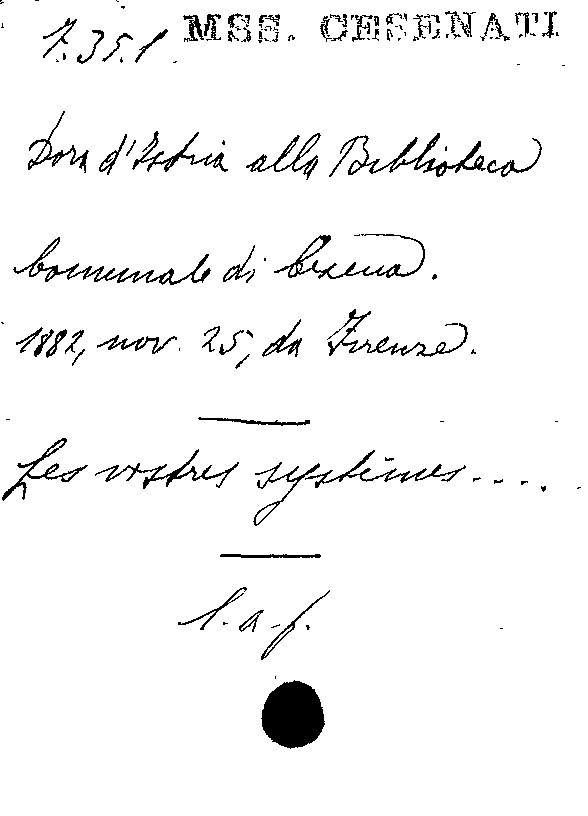 7.35.1 MSS. CESENATI
Dora d'Istria alla Biblioteca
Comunale di Cesena.
1882, nov. 25, da Firenze.
Les vastres systèmes....
l. a. f.